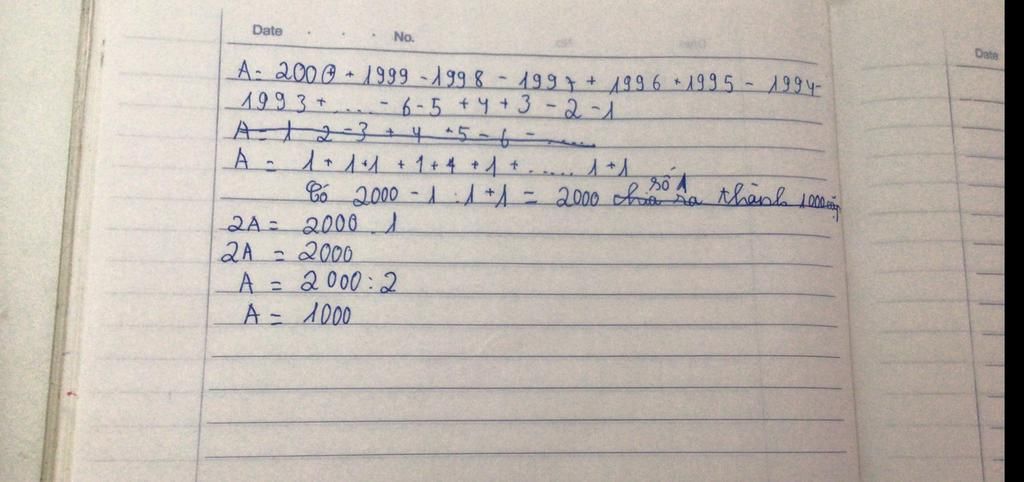 Date . . . No.
A = 2000 + 1999 - 1998 - 1997 + 1996 + 1995 - 1994 -
1993 + .... - 6 - 5 + 4 + 3 - 2 - 1
A = 1 2 - 3 + 4 + 5 - 6 - .....
A = 1 + 1 + 1 + 1 + 1 + 1 + ..... 1 + 1
Có 2000 - 1 : 1 + 1 = 2000 số 1 chia ra thành 1000 cặp
2A = 2000 . 1
2A = 2000
A = 2000 : 2
A = 1000
Date